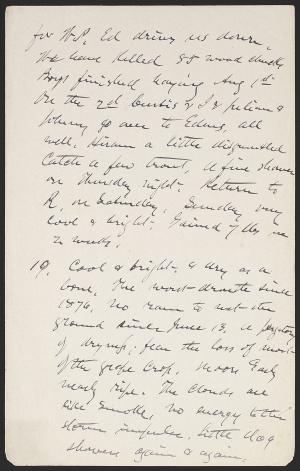 for W.P. Ed drives us down.
We have killed 85 wood chucks
Boys finished haying Aug 1st
On the 2d Curtis & I & Julian &
Johnny go over to Edens, all
well; Hiram a little disgruntled
Catch a few trout, a fine shower
on Thursday night. Return to
R. on Saturday. Sunday very
cool & bright. Gained 7 lbs in
2 weeks.
19. Cool & bright, & dry as a
bone. The worst drouth since
1876, no rain to wet the
ground since June 13, a purgatory
of dryness; fear the loss of most
of the grape crop. Moore's Early
nearly ripe. The clouds are
like smoke, no energy, little
storm impulse. Little dog
showers again & again,